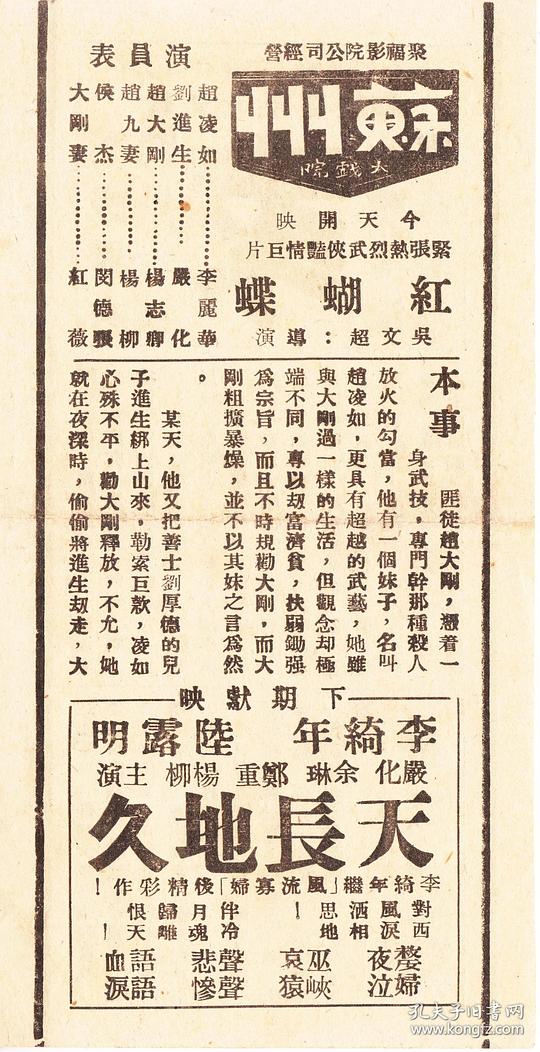 聚福影院公司經營
蘇州
大戲院
今天開映
緊張熱烈武俠豔情巨片
紅蝴蝶
吳文超：導演
演員表
趙凌如………李麗華
劉進生………嚴化
趙大剛………楊志卿
趙九妻………楊柳
侯杰………閔德張
大剛妻………紅薇
本事
匪徒趙大剛，憑着一
身武技，專門幹那種殺人
放火的勾當，他有一個妹子，名叫
趙凌如，更具有超越的武藝，她雖
與大剛過一樣的生活，但觀念却極
端不同，專以刼富濟貧，扶弱鋤强
爲宗旨，而且不時規勸大剛，而大
剛粗擴暴燥，並不以其妹之言爲然
。
某天，他又把善士劉厚德的兒
子進生綁上山來，勒索巨欵，凌如
心殊不平，勸大剛釋放，不允，她
就在夜深時，偷偷將進生刼走，大
下期獻映
李綺年 陸露明
嚴化 余琳 鄭重 楊柳 主演
天長地久
李綺年繼「風流寡婦」後精彩作！
對西風洒思伴月歸恨
淚相地冷魂離天！
嫠婦夜泣
巫峽哀猿
聲聲悲慘
語語血淚
孔夫子旧书网
www.kongfz.com